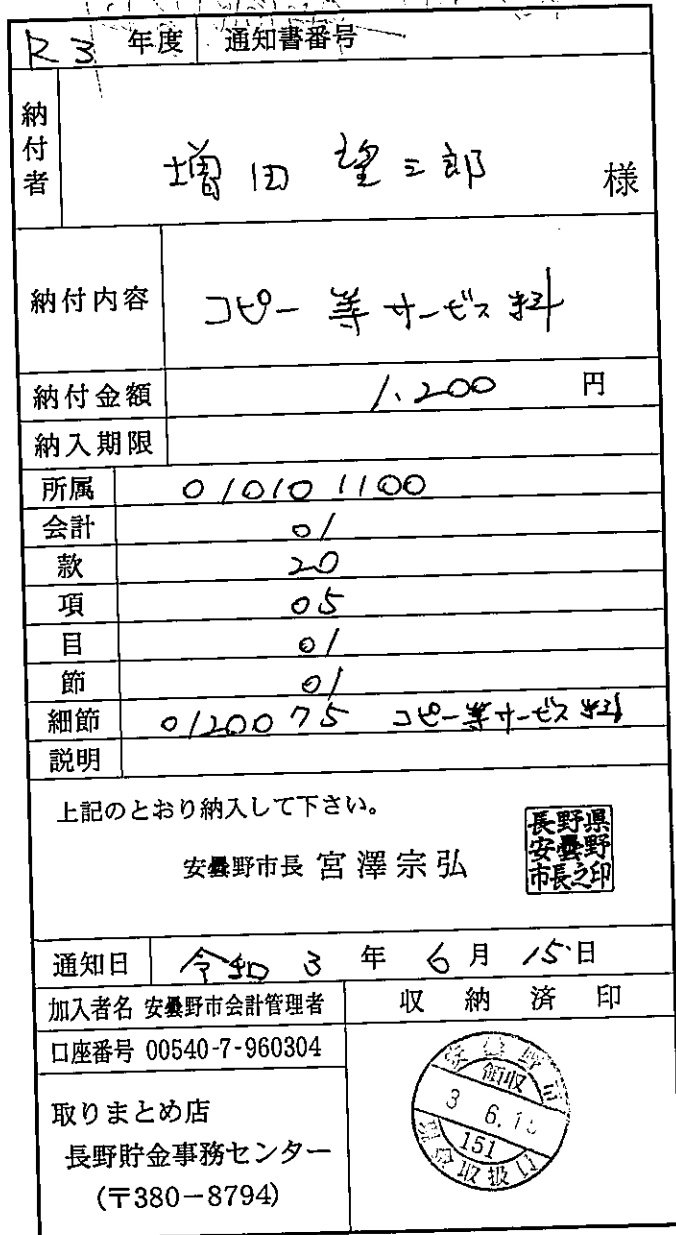 R3 年度 通知書番号
納付者 増田 望三郎 様
納付内容 コピー等サービス料
納付金額 1,200 円
納入期限
所属 010101100
会計 01
款 20
項 05
目 01
節 01
細節 0120075 コピー等サービス料
説明
上記のとおり納入して下さい。
安曇野市長 宮澤宗弘
長野県
安曇野
市長之印
通知日 令和 3 年 6 月 15 日
加入者名 安曇野市会計管理者
口座番号 00540-7-960304
取りまとめ店
長野貯金事務センター
(〒380-8794)
収納済印
領収
3 6.
151